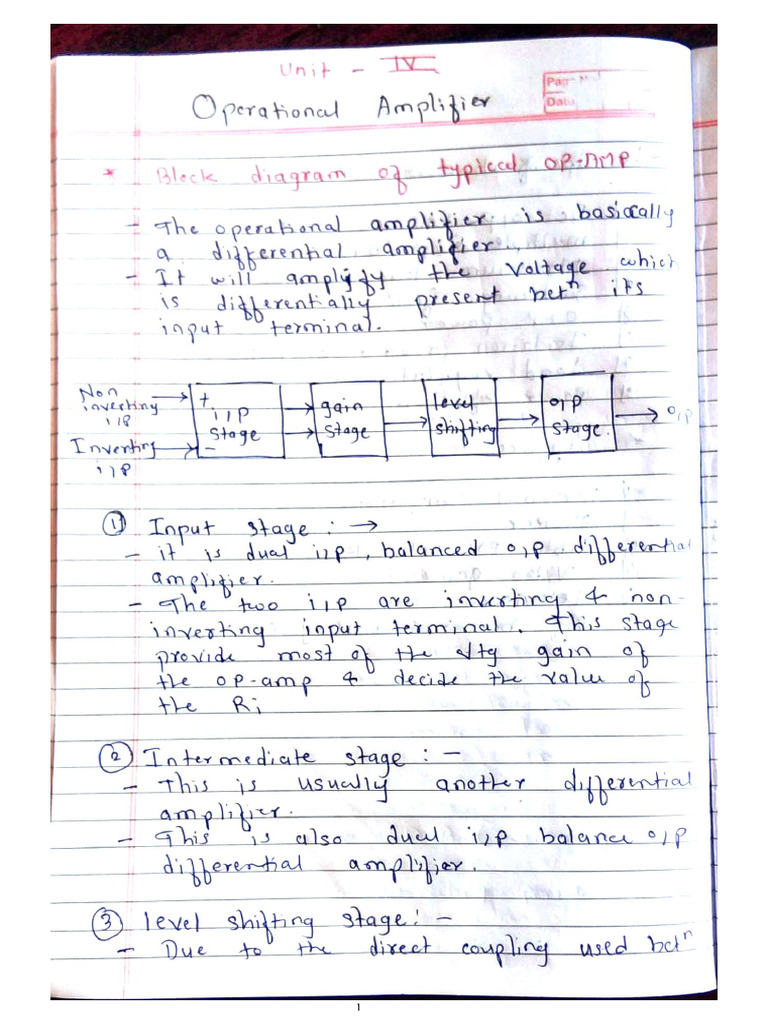 Unit - IV
Operational Amplifier
* Block diagram of typical OP-AMP
- The operational amplifier is basically
a differential amplifier.
- It will amplify the voltage which
is differentially present betn its
input terminal.
Non
inverting
i/p
Inverting
i/p
+
i/p
stage
-
gain
stage
level
shifting
o/p
stage.
o/p
① Input stage : →
- it is dual i/p, balanced o/p differential
amplifier.
- The two i/p are inverting & non-
inverting input terminal. This stage
provide most of the vtg gain of
the op-amp & decide the value of
the Ri
② Intermediate stage : -
- This is usually another differential
amplifier.
- This is also dual i/p balance o/p
differential amplifier.
③ level shifting stage : -
- Due to the direct coupling used betn
1